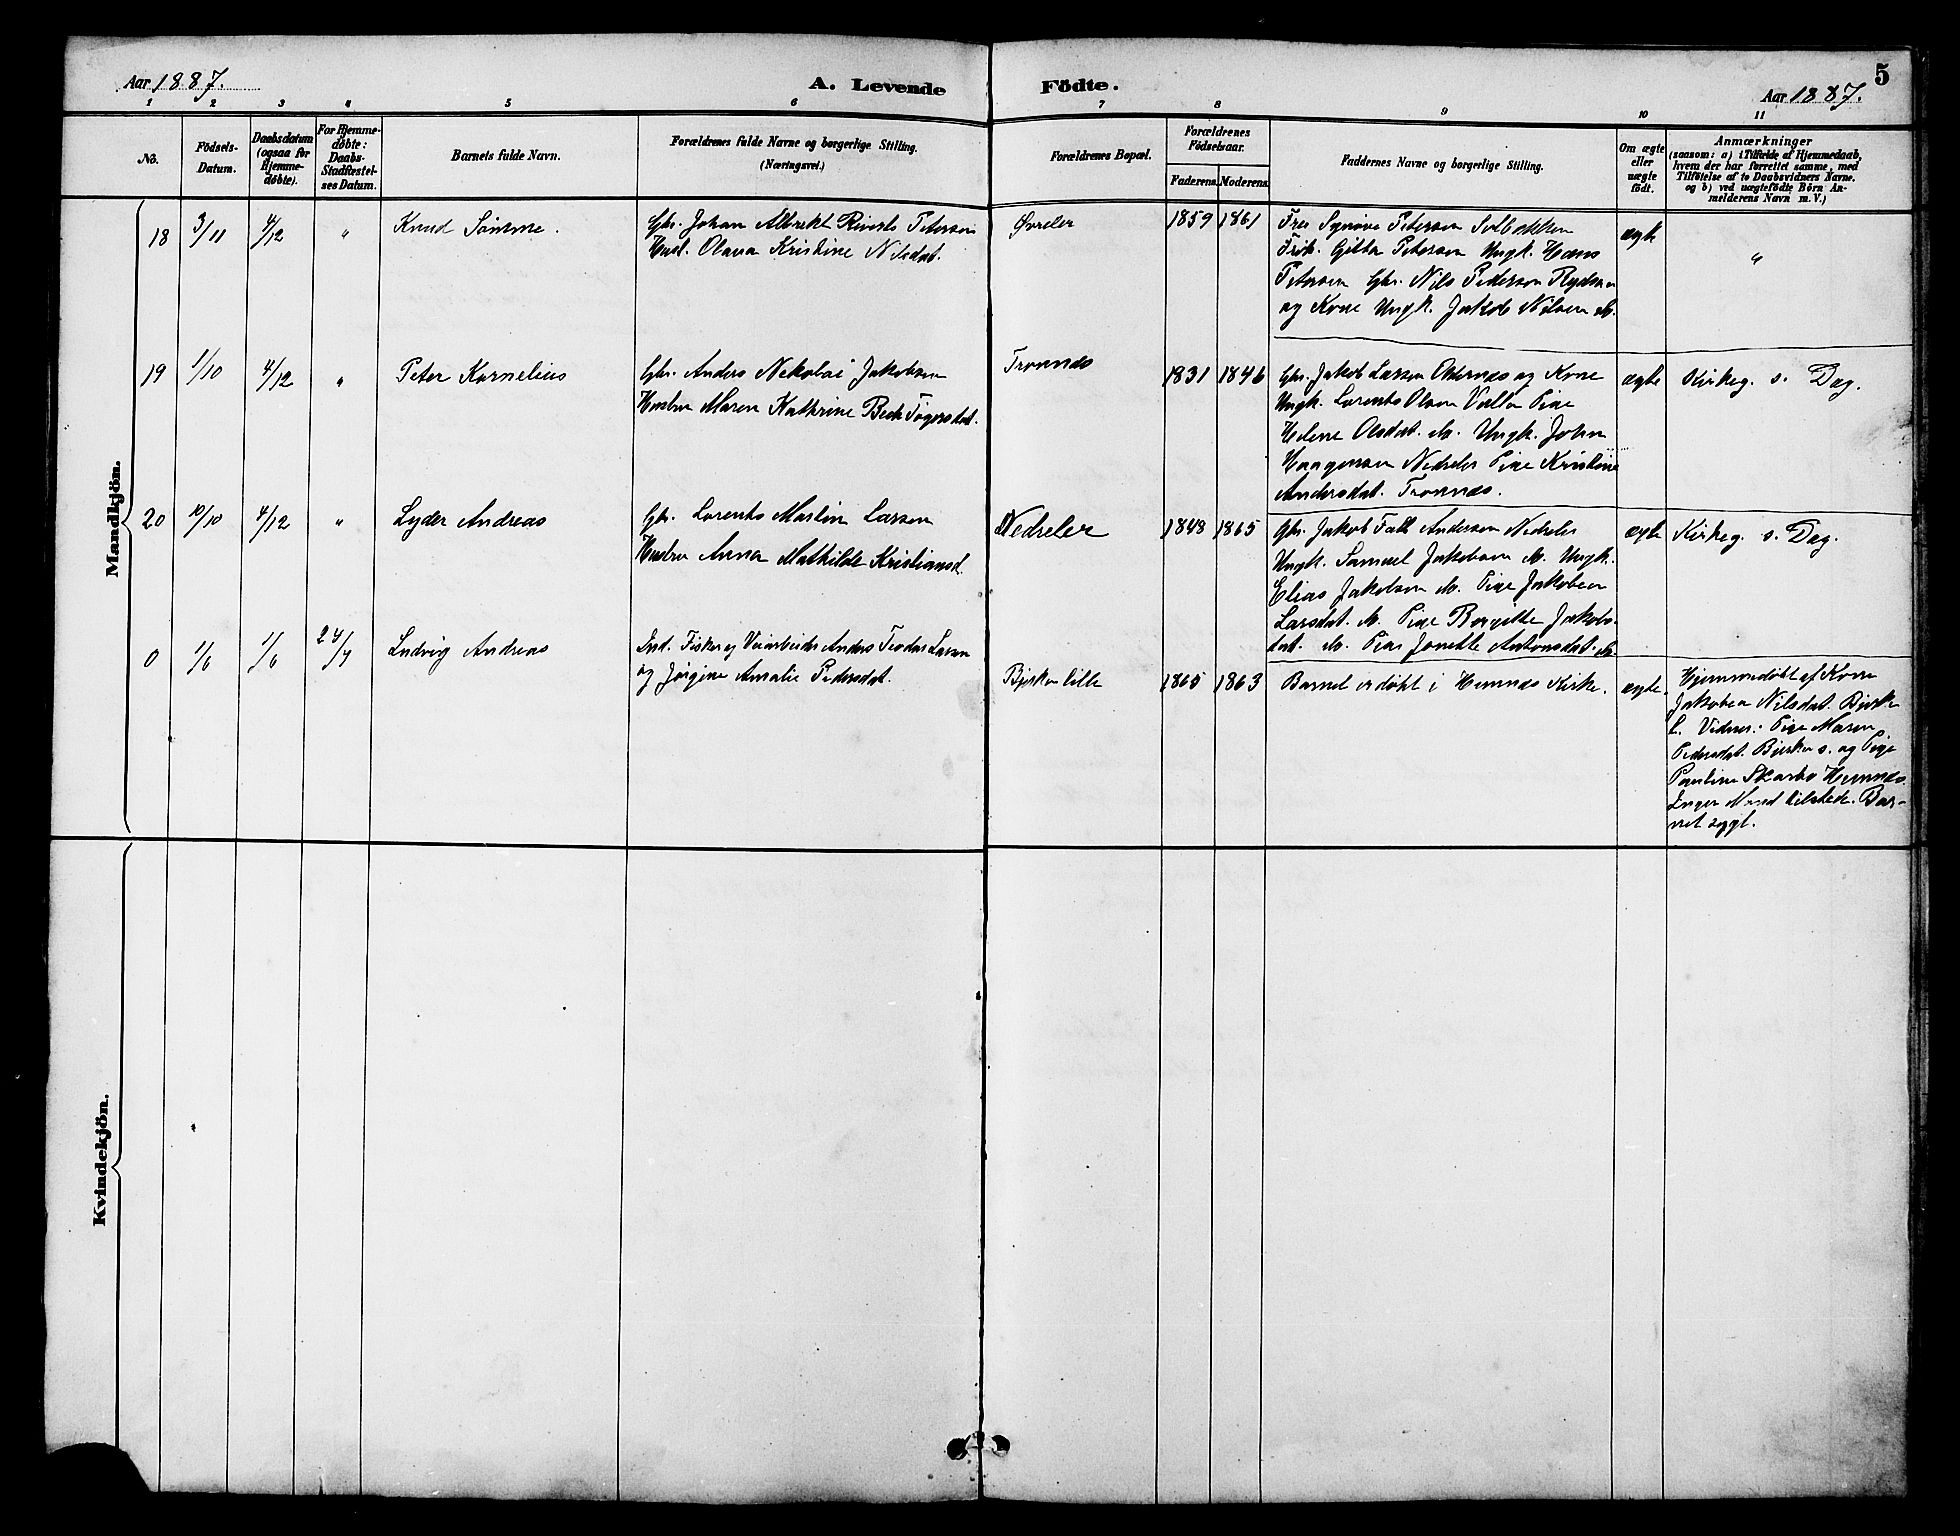 5
Aar 1887.
A. Levende
Födte.
Aar 1887.
1 2 3 4 5 6 7 8 9 10 11
No.
Födsels-
Datum.
Daabsdatum
(ogsaa for
Hjemme-
döbte).
For Hjemme-
döbte:
Daabs-
Stadfæstel-
ses Datum.
Barnets fulde Navn.
Forældrenes fulde Navne og borgerlige Stilling.
(Næringsvei.)
Forældrenes Bopæl.
Forældrenes
Födselsaar.
Faderens.
Moderens.
Faddernes Navne og borgerlige Stilling.
Om ægte
eller
uægte
födt.
Anmærkninger
(saasom: a) i Tilfælde af Hjemmedaab,
hvem der har forrettet samme, med
Tilföielse af to Daabsvidners Navne.
og b) ved uægtefödte Börn An-
melderens Navn m. V.)
Mandkjön.
18
3/11
4/12
"
Knud Sømme.
Gbr. Johan Albrekt Petersen
Hust. Olava Kristine Nilsdat.
Øvreler
1859
1861
Frue Synøve Petersen
Frøk. Gitta Petersen Ungk. Hans
Petersen Gbr. Nils Pederson
og Kone Ungk. Jakob Nilsen
ægte
"
19
1/10
4/12
"
Peter Kornelius
Gbr. Anders Nekolai Jakobsen
Hustru Maren Kathrine Beck
Tronnæs
1831
1846
Gbr. Jakob Larsen og Kone
Ungk. Lorents Olsen Valla Pige
Helene Olsdat. do. Ungk. John
Haagensen Nedreler Pige Kristine
Andersdat. Tronnæs.
ægte
Kirkeg. s. Dag.
20
10/10
4/12
"
Lyder Andreas
Gbr. Lorents Martin Larsen
Hustru Anna Mathilde Kristiansd.
Nedreler
1848
1865
Gbr. Jakob Falk Andersen Nedreler
Ungk. Samuel Jakobsen do. Ungk.
Elias Jakobsen do. Pige Jakobea
Larsdat. do. Pige Bergitte Jakobs-
dat. do. Pige Jonette Antonsdat. do.
ægte
Kirkeg. s. Dag.
0
1/6
1/6
24/7
Ludvig Andreas
Ind. Fisker og Veiarbeider Anders Teodor Larsen
og Jørgine Amalie Pedersdat.
Bjerka lille
1865
1863
Barnet er døbt i Hemnes Kirke.
ægte.
Hjemmedøbt af Kone
Jakobea Nilsdat. Bjerka
l. Vidner: Pige Maren
Pedersdat. Bjerka s. og Pige
Pauline Skarbo Hemnes.
Ingen Mand tilstede. Bar-
net sygt.
Kvindekjön.